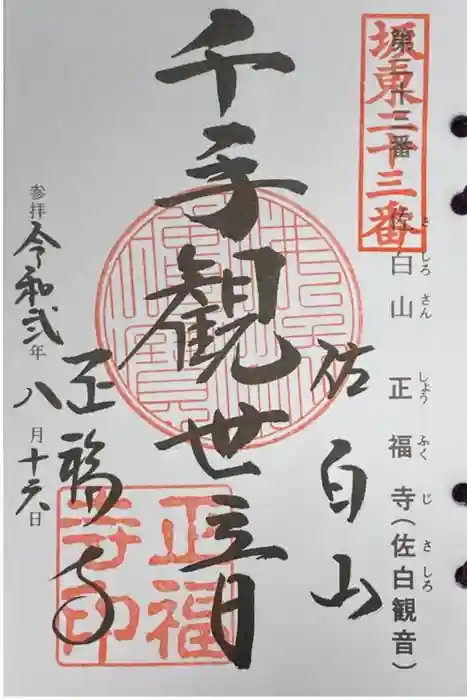 坂東二十三番
第二十三番 佐白山 正福寺(佐白観音)
さ しろ さん しょう ふく じ さ しろ
佐白山
千手観世音
正福寺
参拝 令和弐年八月十六日
正福寺印